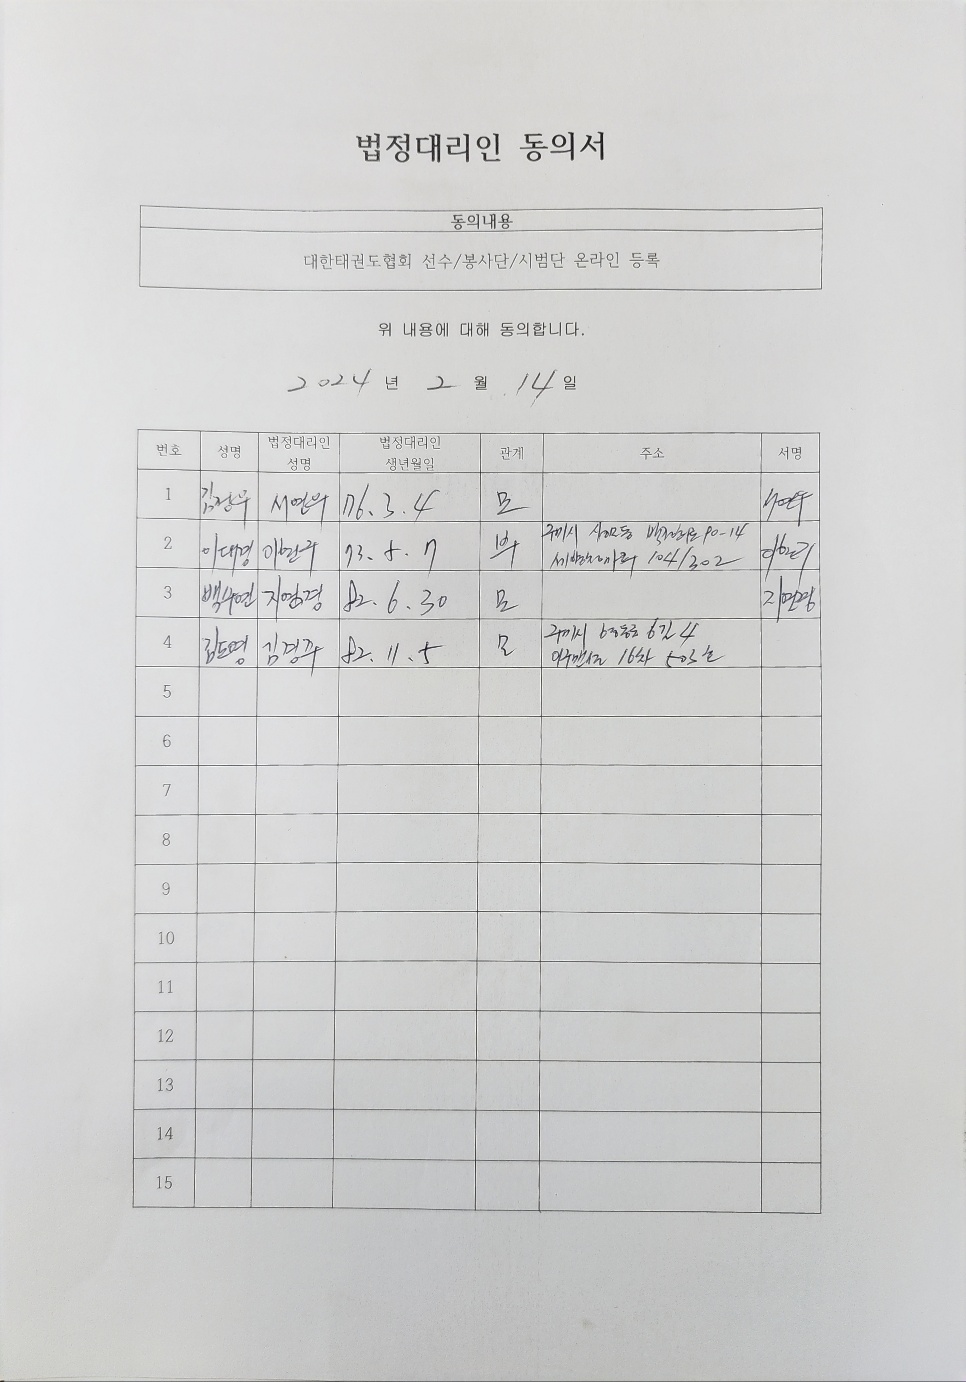 법정대리인 동의서
동의내용
대한태권도협회 선수/봉사단/시범단 온라인 등록
위 내용에 대해 동의합니다.
2024 년 2 월 14 일
번호 성명 법정대리인 성명 법정대리인 생년월일 관계 주소 서명
1 76. 3. 4 모
2 이대경 73. 8. 7 부 구미시 90-14
104/302
3 백승연 82. 6. 30 모
4 김도영 82. 11. 5 모 구미시 6길 4
16차 503호
5
6
7
8
9
10
11
12
13
14
15